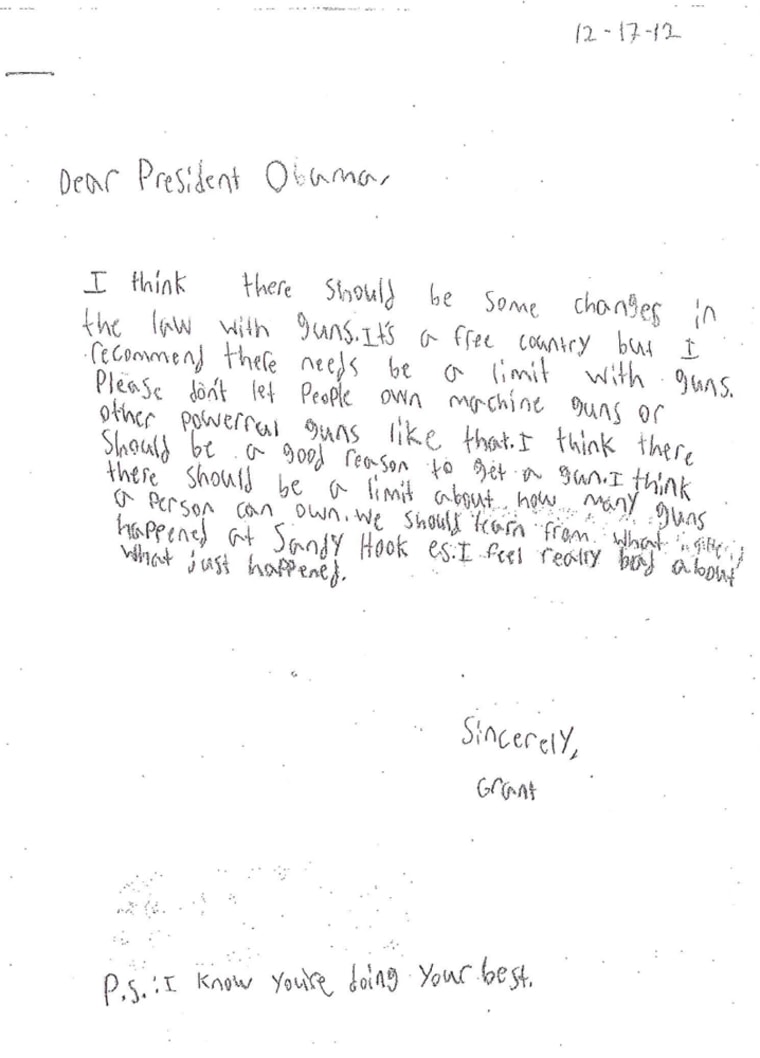 12-17-12
Dear President Obama,
I think there should be some changes in
the law with guns. It's a free country but I
recommend there needs be a limit with guns.
Please don't let People own machine guns or
other powerful guns like that. I think there
should be a good reason to get a gun. I think
there should be a limit about how many guns
a person can own. We should learn from what
happened at Sandy Hook es. I feel really bad about
what just happened.
Sincerely,
Grant
P.s.: I know you're doing your best.